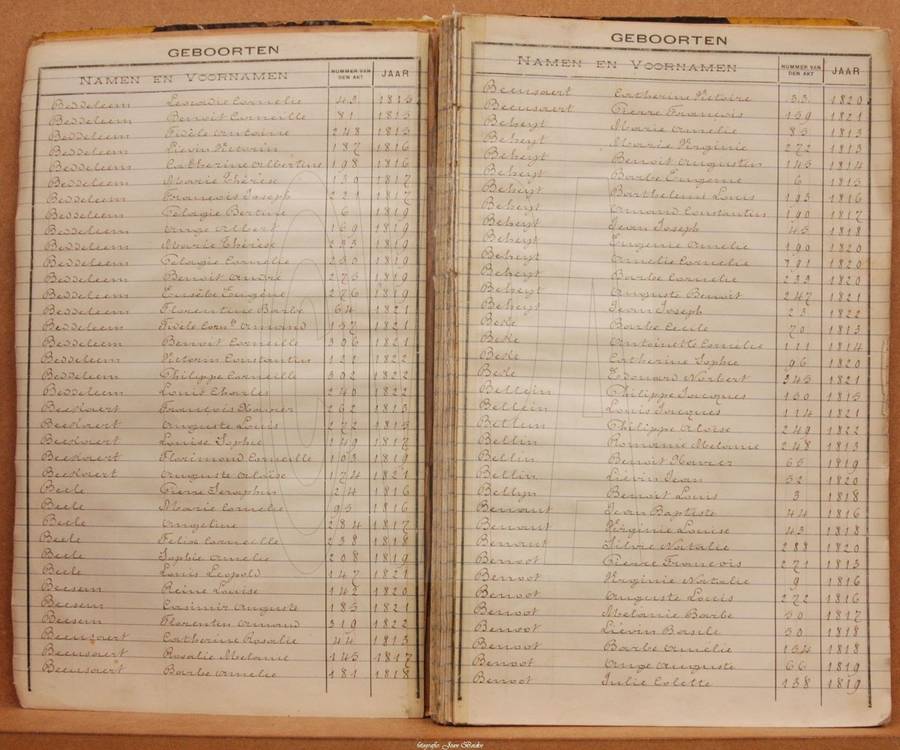 GEBOORTEN
NAMEN EN VOORNAMEN NUMMER VAN DEN AKT JAAR
Beddeleem Leocadie Cornelie 43 1813
Beddeleem Benoit Corneille 81 1813
Beddeleem Fidèle Antoine 248 1813
Beddeleem Livin Victorin 187 1816
Beddeleem Catherine Albertine 198 1816
Beddeleem Marie Thérèse 139 1817
Beddeleem François Joseph 221 1817
Beddeleem Pélagie Bertine 6 1819
Beddeleem Ange Albert 169 1819
Beddeleem Marie Thérèse 233 1819
Beddeleem Pélagie Cornelie 250 1819
Beddeleem Benoit André 275 1819
Beddeleem Eusèbe Eugène 276 1819
Beddeleem Florentine Barbe 64 1821
Beddeleem Fidèle Corn. Armand 157 1821
Beddeleem Benoit Corneille 306 1821
Beddeleem Victorin Constantin 122 1822
Beddeleem Philippe Corneille 302 1822
Beddeleem Louis Charles 240 1822
Beekaert François Xavier 262 1813
Beekaert Auguste Louis 272 1815
Beekaert Louise Sophie 149 1817
Beekaert Florimond Corneille 103 1819
Beekaert Auguste Aloïse 174 1821
Beele Pierre Seraphin 214 1816
Beele Marie Cornelie 95 1816
Beele Angeline 284 1817
Beele Felix Corneille 238 1818
Beele Sophie Amelie 208 1819
Beele Louis Leopold 147 1821
Beesem Reine Louise 142 1820
Beesem Casimir Auguste 183 1821
Beesem Florentin Armand 319 1822
Beeusaert Catherine Rosalie 44 1813
Beeusaert Rosalie Melanie 143 1817
Beeusaert Barbe Amelie 181 1818
GEBOORTEN
NAMEN EN VOORNAMEN NUMMER VAN DEN AKT JAAR
Beeusaert Catherine Victoire 33 1820
Beeusaert Pierre François 159 1821
Beheyt Marie Amelie 85 1813
Beheyt Marie Virginie 272 1813
Beheyt Benoit Augustin 145 1814
Beheyt Barbe Eugenie 6 1815
Beheyt Barthelemi Louis 193 1816
Beheyt Armand Constantin 190 1817
Beheyt Jean Joseph 45 1818
Beheyt Eugenie Amelie 190 1820
Beheyt Amelie Cornelie 291 1820
Beheyt Barbe Cornelie 233 1820
Beheyt Auguste Benoit 247 1821
Beheyt Jean Joseph 23 1822
Beke Barbe Cecile 70 1813
Beke Antoinette Cornelie 111 1814
Beke Catherine Sophie 96 1820
Beke Edouard Norbert 345 1821
Bellein Philippe Jacques 150 1815
Bellein Louis Jacques 114 1821
Bellein Philippe Aloïse 249 1822
Bellin Romanie Melanie 248 1813
Bellin Benoit Xavier 65 1819
Bellin Lievin Jean 32 1820
Bellyn Benoit Louis 3 1818
Benaut Jean Baptiste 44 1816
Benaut Virginie Louise 43 1818
Benaut Silvie Natalie 288 1820
Benoot Pierre François 271 1813
Benoot Virginie Natalie 9 1816
Benoot Auguste Louis 272 1816
Benoot Melanie Barbe 30 1817
Benoot Liévin Basile 50 1818
Benoot Barbe Amelie 134 1818
Benoot Ange Auguste 66 1819
Benoot Julie Colette 138 1819
fotografie: Jean Baekie